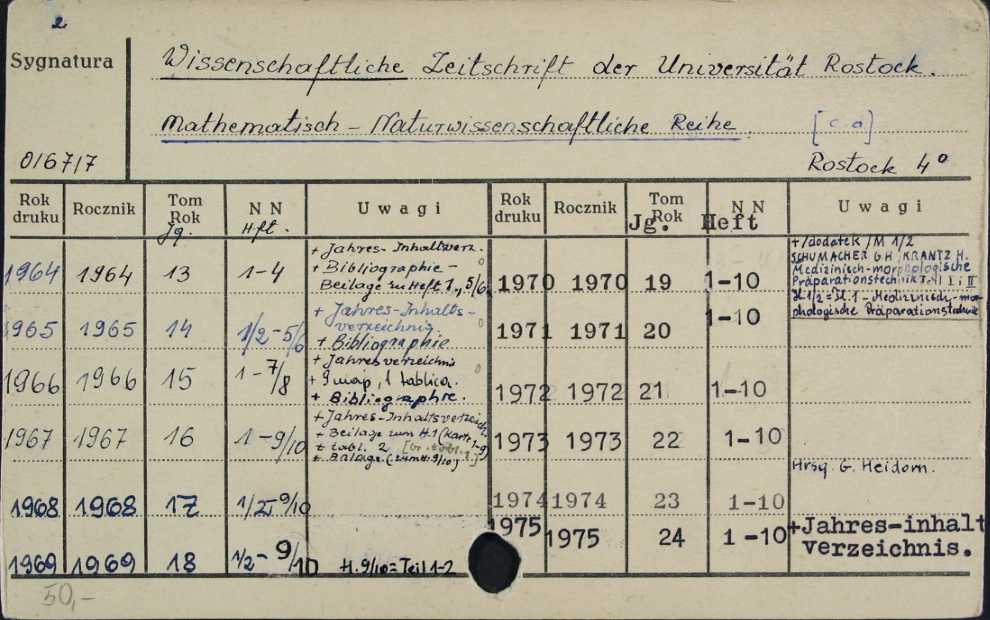 2
Sygnatura
Wissenschaftliche Zeitschrift der Universität Rostock.
Mathematisch - Naturwissenschaftliche Reihe.
[c.d]
016717
Rostock 4°
Rok druku Rocznik Tom Rok Jg. NN Hft. Uwagi
1964 1964 13 1-4 + Jahres-Inhaltverz.
+ Bibliographie -
Beilage zu Heft 1, 5/6
1965 1965 14 1/2-5/6 + Jahres-Inhalts-
verzeichnis.
+ Bibliographie
1966 1966 15 1-7/8 + Jahresverzeichnis
+ 9 map, 1 tablica.
+ Bibliographie.
1967 1967 16 1-9/10 + Jahres-Inhaltsverzeich.
+ Beilage zum H.1 (Karte 1-9)
+ tabl. 2
+ Beilage (zum H. 9/10)
1968 1968 17 1/2-9/10
1969 1969 18 1/2-9/10 H. 9/10 = Teil 1-2
Rok druku Rocznik Tom Rok Jg. NN Heft Uwagi
1970 1970 19 1-10 +/dodatek/M 1/2
SCHUMACHER GH, KRANTZ H.
Medizinisch-morphologische
Präparationstechnik T. I i II
H 1/2 = H.1 - Medizinisch-mor-
phologische Präparationstechnik
1971 1971 20 1-10
1972 1972 21 1-10
1973 1973 22 1-10
Hrsg. G. Heidorn.
1974 1974 23 1-10
1975 1975 24 1-10 +Jahres-inhalt
verzeichnis.
50,-